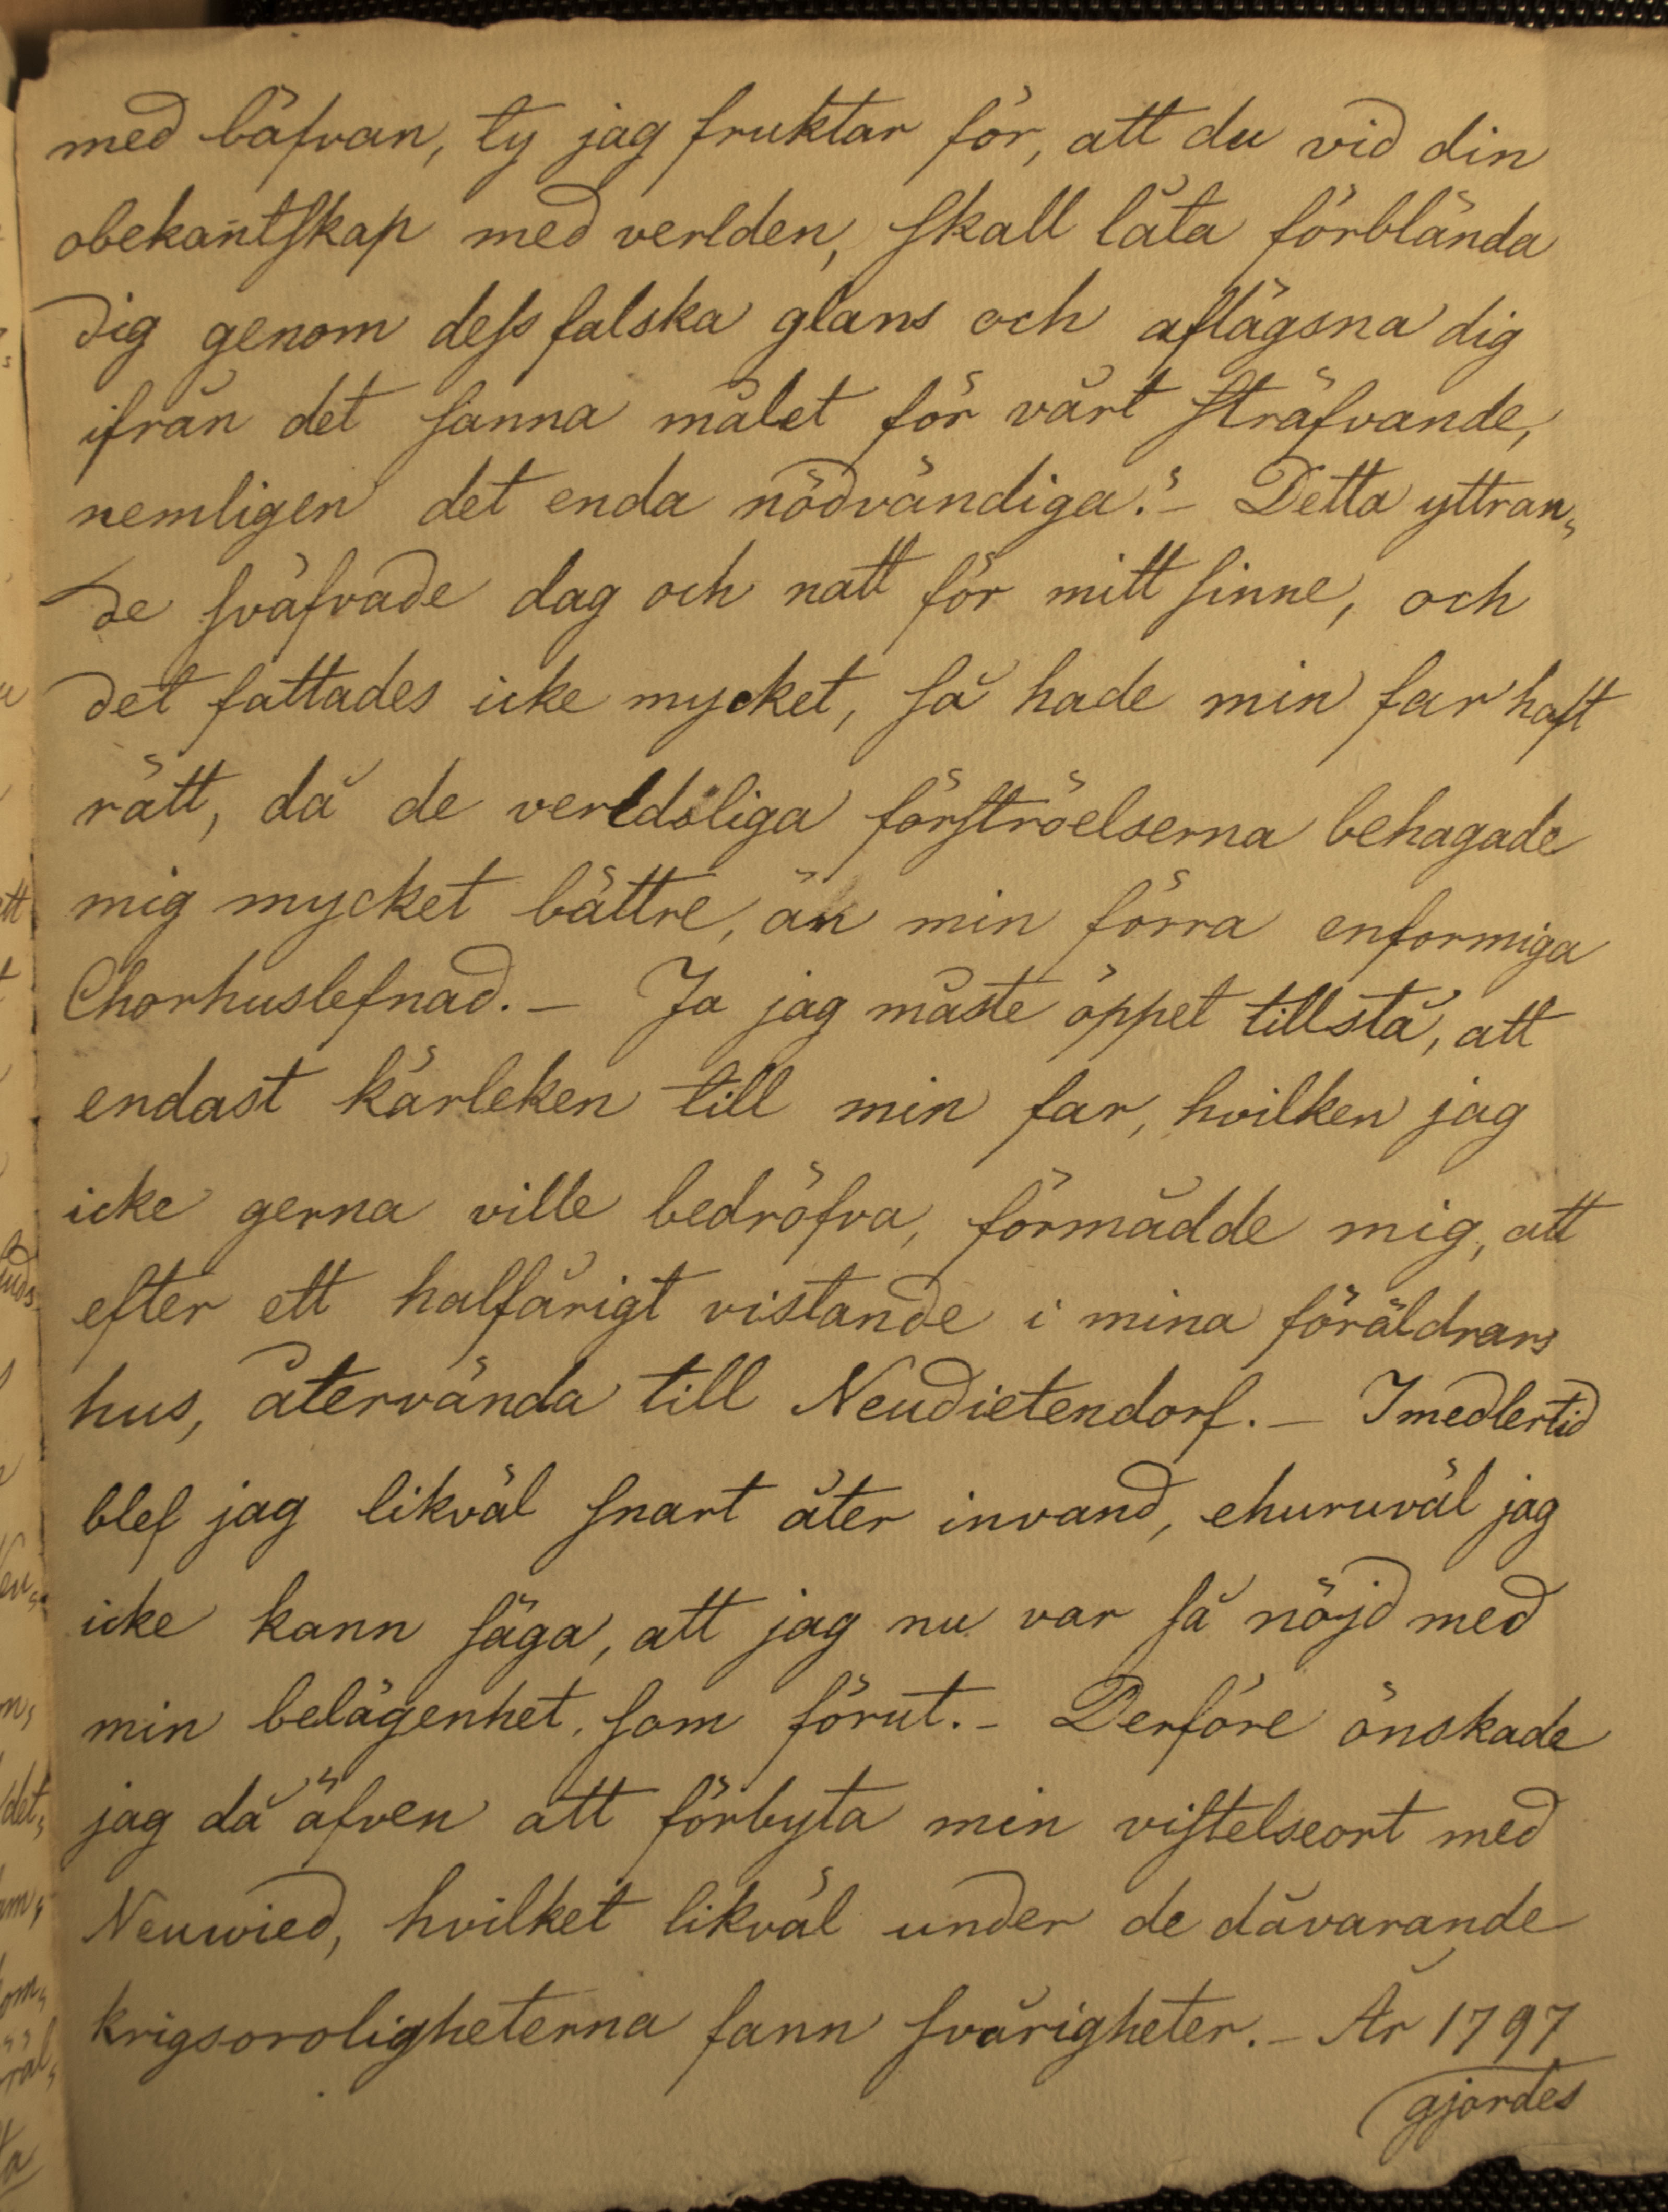 med bäfvan, ty jag fruktar för, att du vid din
obekan̄tſkap med verlden, ſkall låta förblända
dig genom deſs falska glans och aflägsna dig
ifrån det ſanna målet för vårt ſträfvande,
nemligen det enda nödvändiga." – Detta yttran„
de ſväfvade dag och natt för mitt ſinne, och
det fattades icke mycket, ſå hade min far haft
rätt, då de verldsliga förſtröelserna behagade
mig mycket bättre, än min förra enformiga
Chorhuslefnad. – Ja jag måste öppet tillstå, att
endast kärleken till min far, hvilken jag
icke gerna ville bedröfva, förmådde mig, att
efter ett halfårigt vistande i mina föräldrars
hus, återvända till Neudietendorf. – Imedlertid
blef jag likväl ſnart åter invand, ehuruväl jag
icke kann ſäga, att jag nu var ſå nöjd med
min belägenhet, ſom förut. – Derföre önskade
jag då äfven att förbyta min viſtelseort med
Neuwied, hvilket likväl under de dåvarande
krigsoroligheterna fann ſvårigheter. – År 1797
gjordes